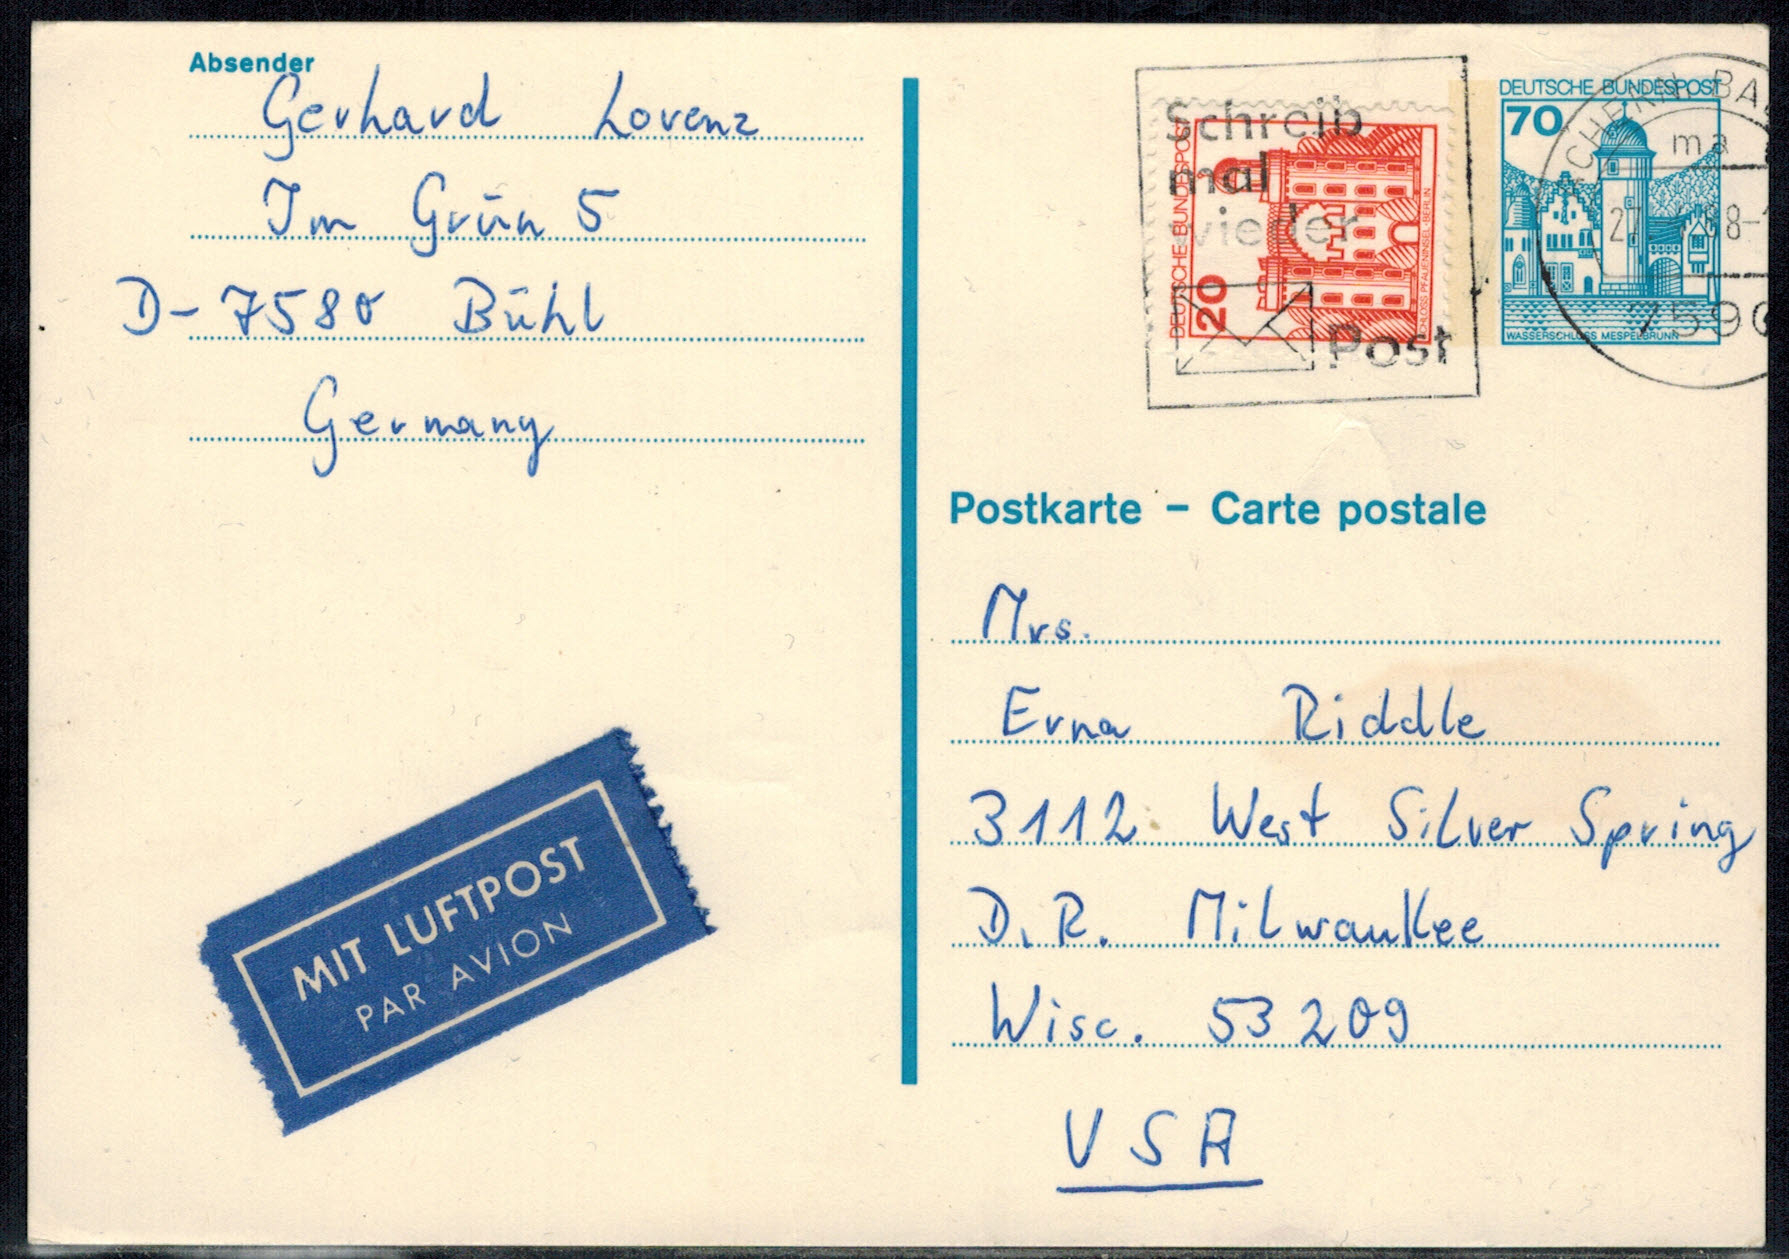 Absender
Gerhard Lorenz
Im Grün 5
D-7580 Bühl
Germany
Schreib
mal
wieder
Post
DEUTSCHE BUNDESPOST
20
SCHLOSS PFAUENINSEL-BERLIN
DEUTSCHE BUNDESPOST
70
WASSERSCHLOSS MESPELBRUNN
ma
27
7590
Postkarte – Carte postale
Mrs.
Erna Riddle
3112 West Silver Spring
D.R. Milwaukee
Wisc. 53209
USA
MIT LUFTPOST
PAR AVION